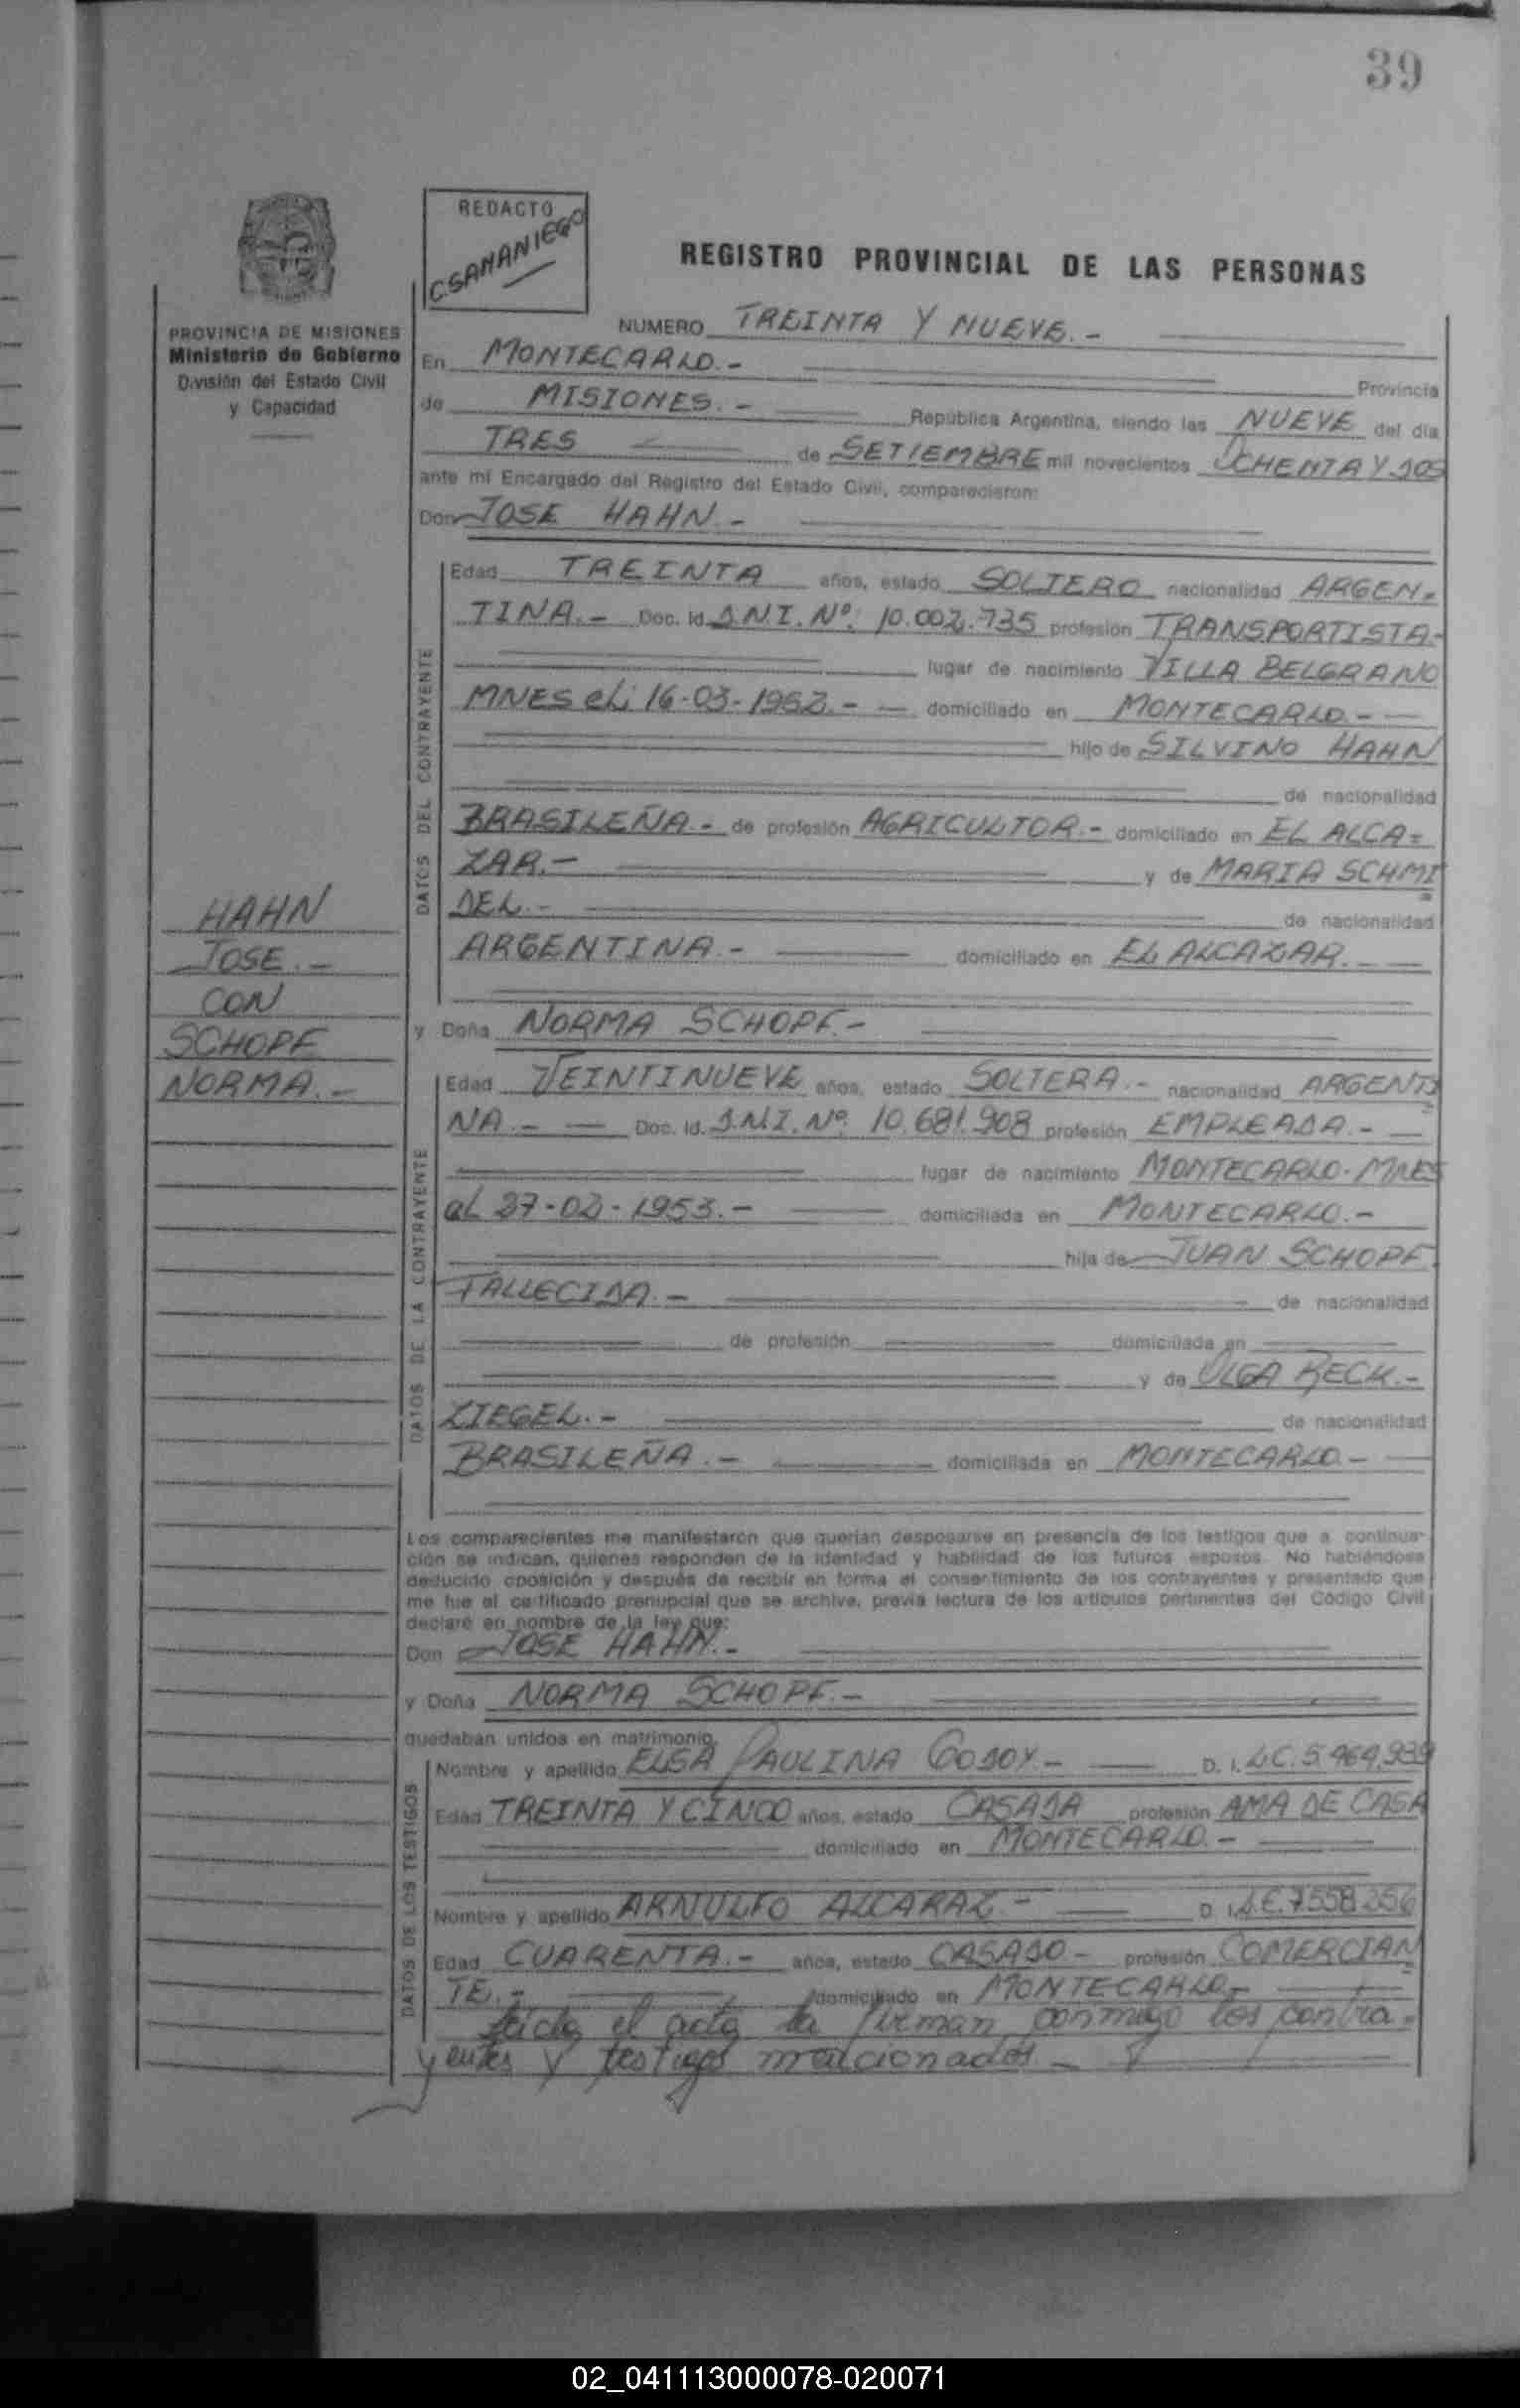 39
REDACTO
C. SAMANIEGO
REGISTRO PROVINCIAL DE LAS PERSONAS
PROVINCIA DE MISIONES
Ministerio de Gobierno
División del Estado Civil
y Capacidad
NUMERO TREINTA Y NUEVE.-
En MONTECARLO.-
Provincia
de MISIONES.- República Argentina, siendo las NUEVE del día
TRES de SETIEMBRE mil novecientos OCHENTA Y DOS
ante mi Encargado del Registro del Estado Civil, comparecieron:
Don JOSE HAHN.-
DATOS DEL CONTRAYENTE
Edad TREINTA años, estado SOLTERO nacionalidad ARGEN=
TINA.- Doc. Id. D.N.I. Nº: 10.002.735 profesión TRANSPORTISTA.-
lugar de nacimiento VILLA BELGRANO
MNES el: 16-03-1952.- domiciliado en MONTECARLO.-
hijo de SILVINO HAHN
de nacionalidad
BRASILEÑA.- de profesión AGRICULTOR.- domiciliado en EL ALCA=
ZAR.- y de MARIA SCHMI=
DEL.- de nacionalidad
ARGENTINA.- domiciliado en EL ALCAZAR.-
HAHN
JOSE.-
CON
SCHOPF
NORMA.-
y Doña NORMA SCHOPF.-
DATOS DE LA CONTRAYENTE
Edad VEINTINUEVE años, estado SOLTERA.- nacionalidad ARGENTI=
NA.- Doc. Id. D.N.I. Nº. 10.681.908 profesión EMPLEADA.-
lugar de nacimiento MONTECARLO-MNES
el 27-02-1953.- domiciliada en MONTECARLO.-
hija de JUAN SCHOPF
FALLECIDA.- de nacionalidad
de profesión domiciliada en
y de OLGA BECK.-
ZIEGEL.- de nacionalidad
BRASILEÑA.- domiciliada en MONTECARLO.-
Los comparecientes me manifestaron que querían desposarse en presencia de los testigos que a continua-
ción se indican, quienes responden de la identidad y habilidad de los futuros esposos. No habiéndose
deducido oposición y después de recibir en forma el consentimiento de los contrayentes y presentado que
me fue el certificado prenupcial que se archiva, previa lectura de los artículos pertinentes del Código Civil
declaré en nombre de la ley que:
Don JOSE HAHN.-
y Doña NORMA SCHOPF.-
quedaban unidos en matrimonio.
DATOS DE LOS TESTIGOS
Nombre y apellido ELSA PAULINA GODOY.- D. I. L.C. 5.464.939
Edad TREINTA Y CINCO años, estado CASADA profesión AMA DE CASA
domiciliado en MONTECARLO.-
Nombre y apellido ARNULFO ALCARAZ.- D. I. L.E. 7.558.256
Edad CUARENTA.- años, estado CASADO- profesión COMERCIAN=
TE.- domiciliado en MONTECARLO.-
Leída el acta la firman conmigo los contra=
yentes y testigos mencionados.-
02_041113000078-020071